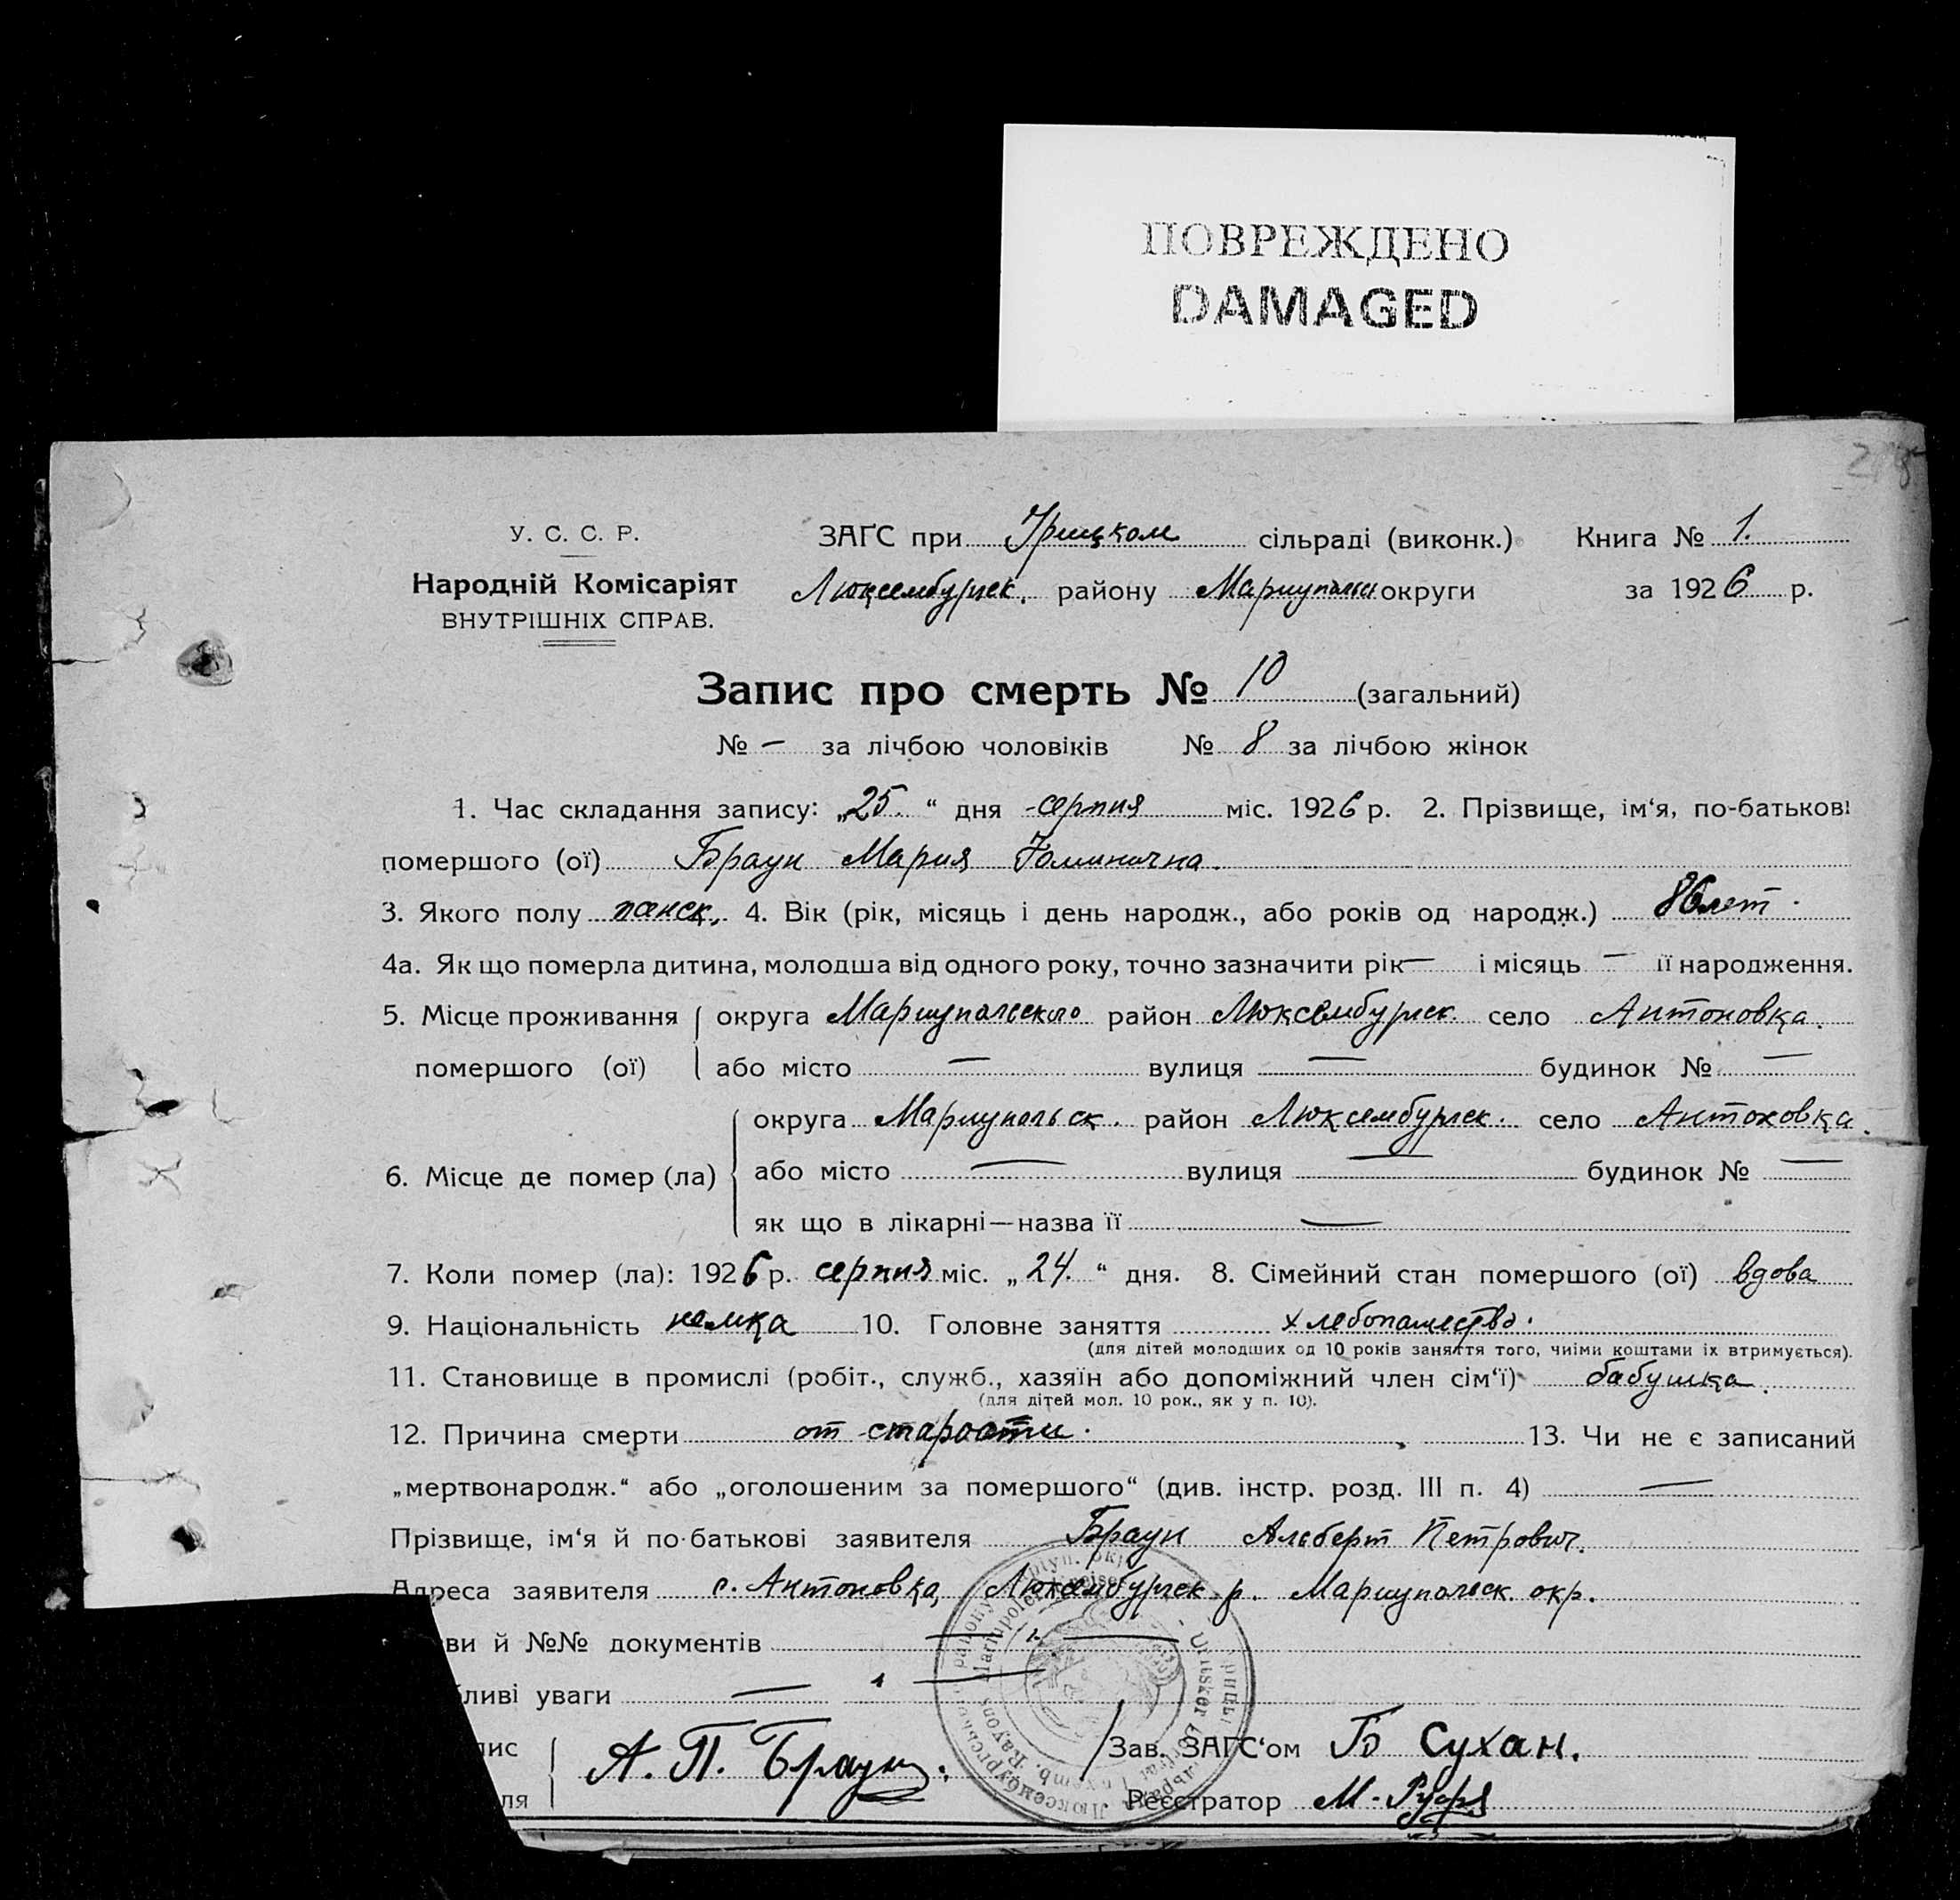 ПОВРЕЖДЕНО
DAMAGED
У. С. С. Р.
Народній Комісаріят
ВНУТРІШНІХ СПРАВ.
ЗАГС при сільраді (виконк.) Книга № 1.
Люксембургск. району Мариупольс округи за 1926 р.
Запис про смерть № 10 (загальний)
№ — за лічбою чоловіків № 8 за лічбою жінок
1. Час складання запису: „25.“ дня серпня міс. 1926 р. 2. Прізвище, ім‘я, по-батькові
помершого (ої) Браун Мария
3. Якого полу 4. Вік (рік, місяць і день народж., або років од народж.) 86 лет.
4а. Як що померла дитина, молодша від одного року, точно зазначити рік — і місяць — її народження.
5. Місце проживання округа Мариупольского район Люксембургск. село Антоновка.
помершого (ої) або місто — вулиця — будинок № —
округа Мариупольск. район Люксембургск. село Антоновка.
6. Місце де помер (ла) або місто — вулиця — будинок № —
як що в лікарні—назва її —
7. Коли помер (ла): 1926 р. серпня міс. „24.“ дня. 8. Сімейний стан помершого (ої) вдова
9. Національність немка 10. Головне заняття хлебопашество.
(для дітей молодших од 10 років заняття того, чиїми коштами їх втримується).
11. Становище в промислі (робіт., служб., хазяїн або допоміжний член сім‘ї) бабушка.
(для дітей мол. 10 рок., як у п. 10).
12. Причина смерти от старости. 13. Чи не є записаний
„мертвонародж.“ або „оголошеним за помершого“ (див. інстр. розд. III п. 4) —
Прізвище, ім‘я й по-батькові заявителя Браун Альберт Петрович.
Адреса заявителя с. Антоновка, Люксембургск. р. Мариупольск. окр.
ви й №№ документів —
ливі уваги —
ис А. П. Браун. Зав. ЗАГС‘ом Б Сухан.
ля Реєстратор М.